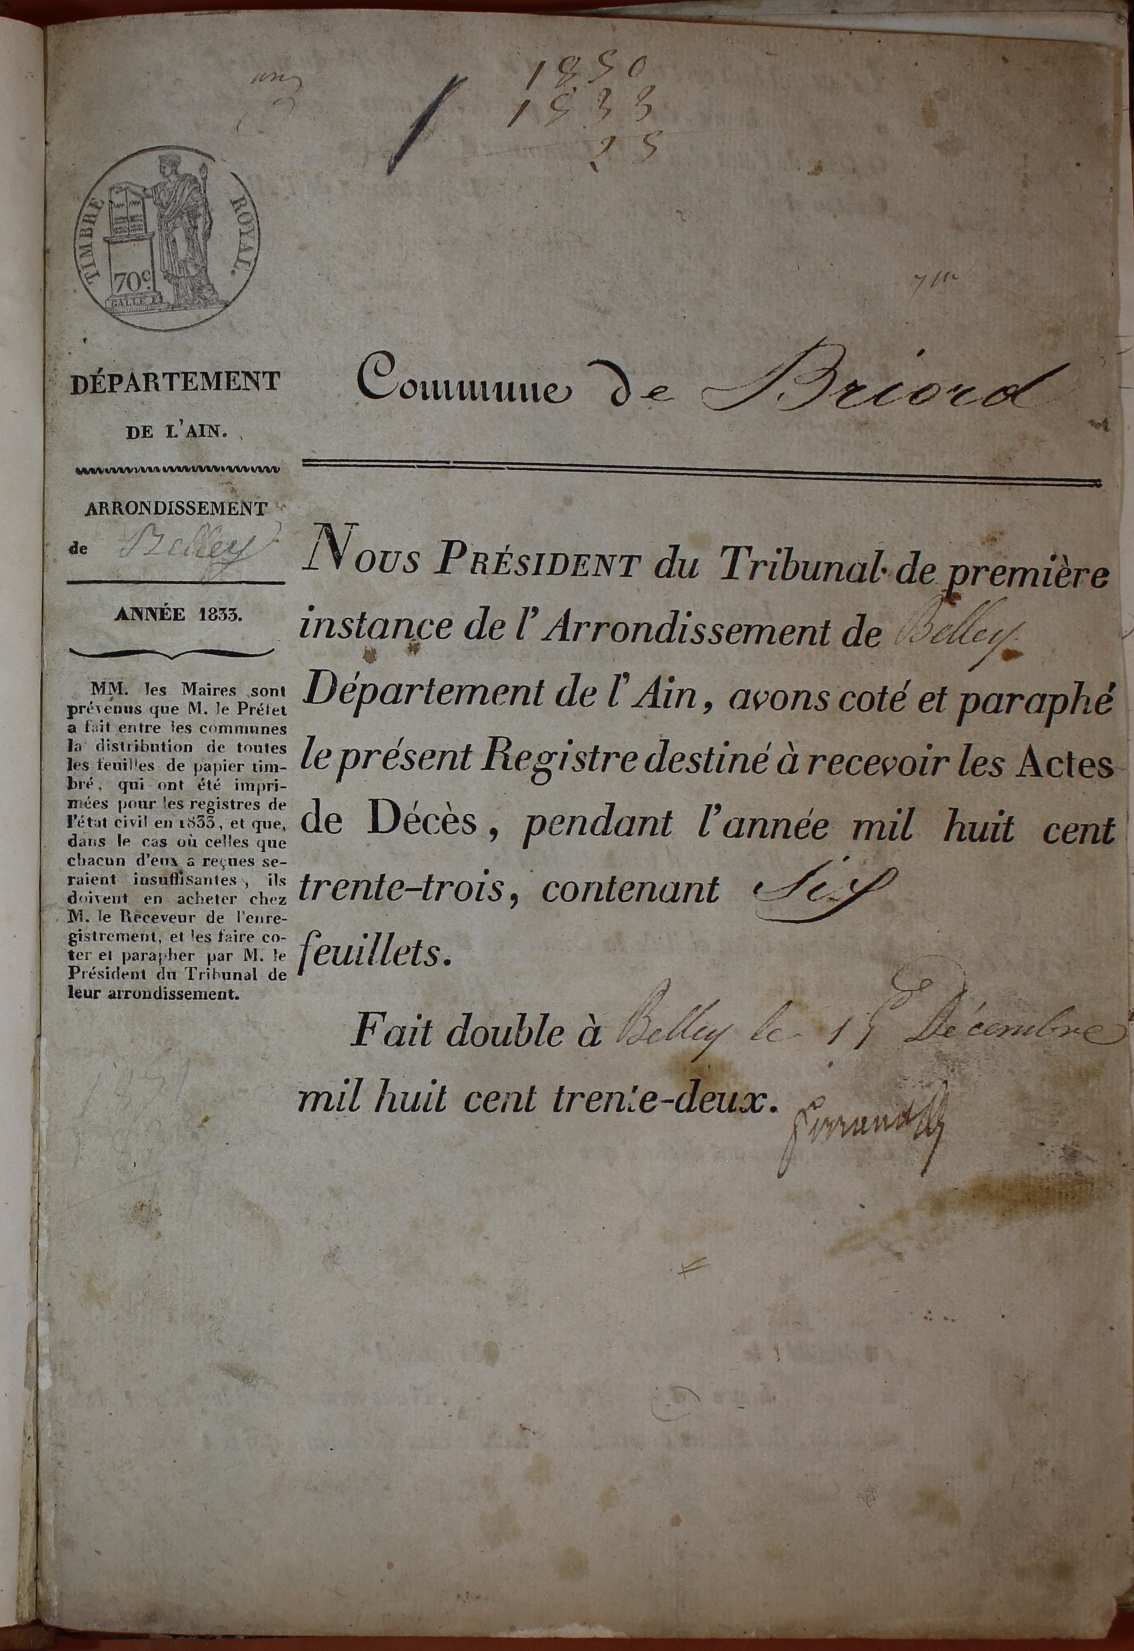 1850
1833
25
TIMBRE ROYAL.
70c.
DÉPARTEMENT
DE L'AIN.
ARRONDISSEMENT
de Belley
ANNÉE 1833.
MM. les Maires sont
prévenus que M. le Préfet
a fait entre les communes
la distribution de toutes
les feuilles de papier tim-
bré, qui ont été impri-
mées pour les registres de
l'état civil en 1833, et que,
dans le cas où celles que
chacun d'eux a reçues se-
raient insuffisantes, ils
doivent en acheter chez
M. le Receveur de l'enre-
gistrement, et les faire co-
ter et parapher par M. le
Président du Tribunal de
leur arrondissement.
Commune de Briord
NOUS PRÉSIDENT du Tribunal de première
instance de l'Arrondissement de Belley
Département de l'Ain, avons coté et paraphé
le présent Registre destiné à recevoir les Actes
de Décès, pendant l'année mil huit cent
trente-trois, contenant Six
feuillets.
Fait double à Belley le 15 Décembre
mil huit cent trente-deux.